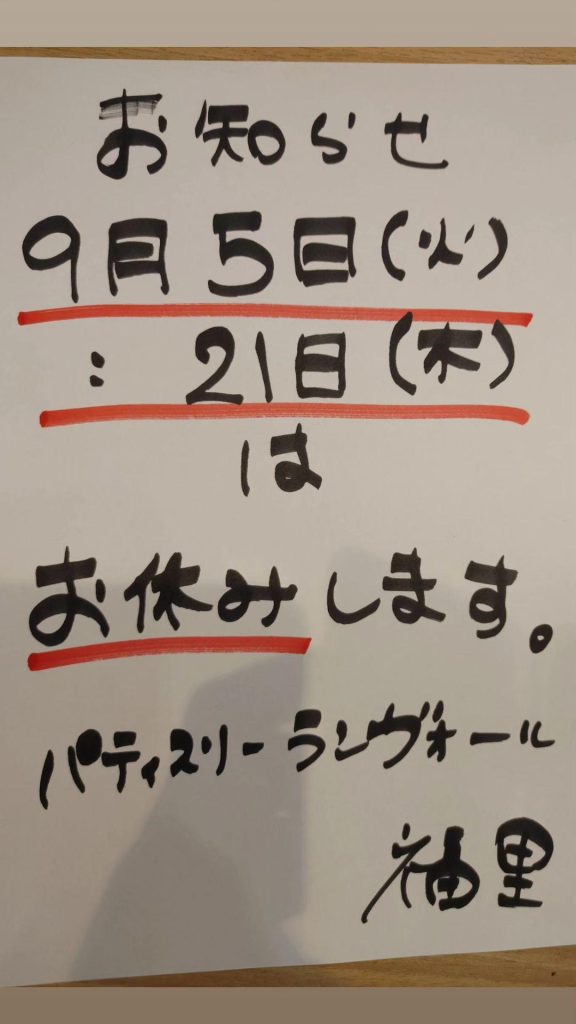 お知らせ
9月5日(火)
: 21日(木)
は
お休みします。
パティスリーランヴォール
福里